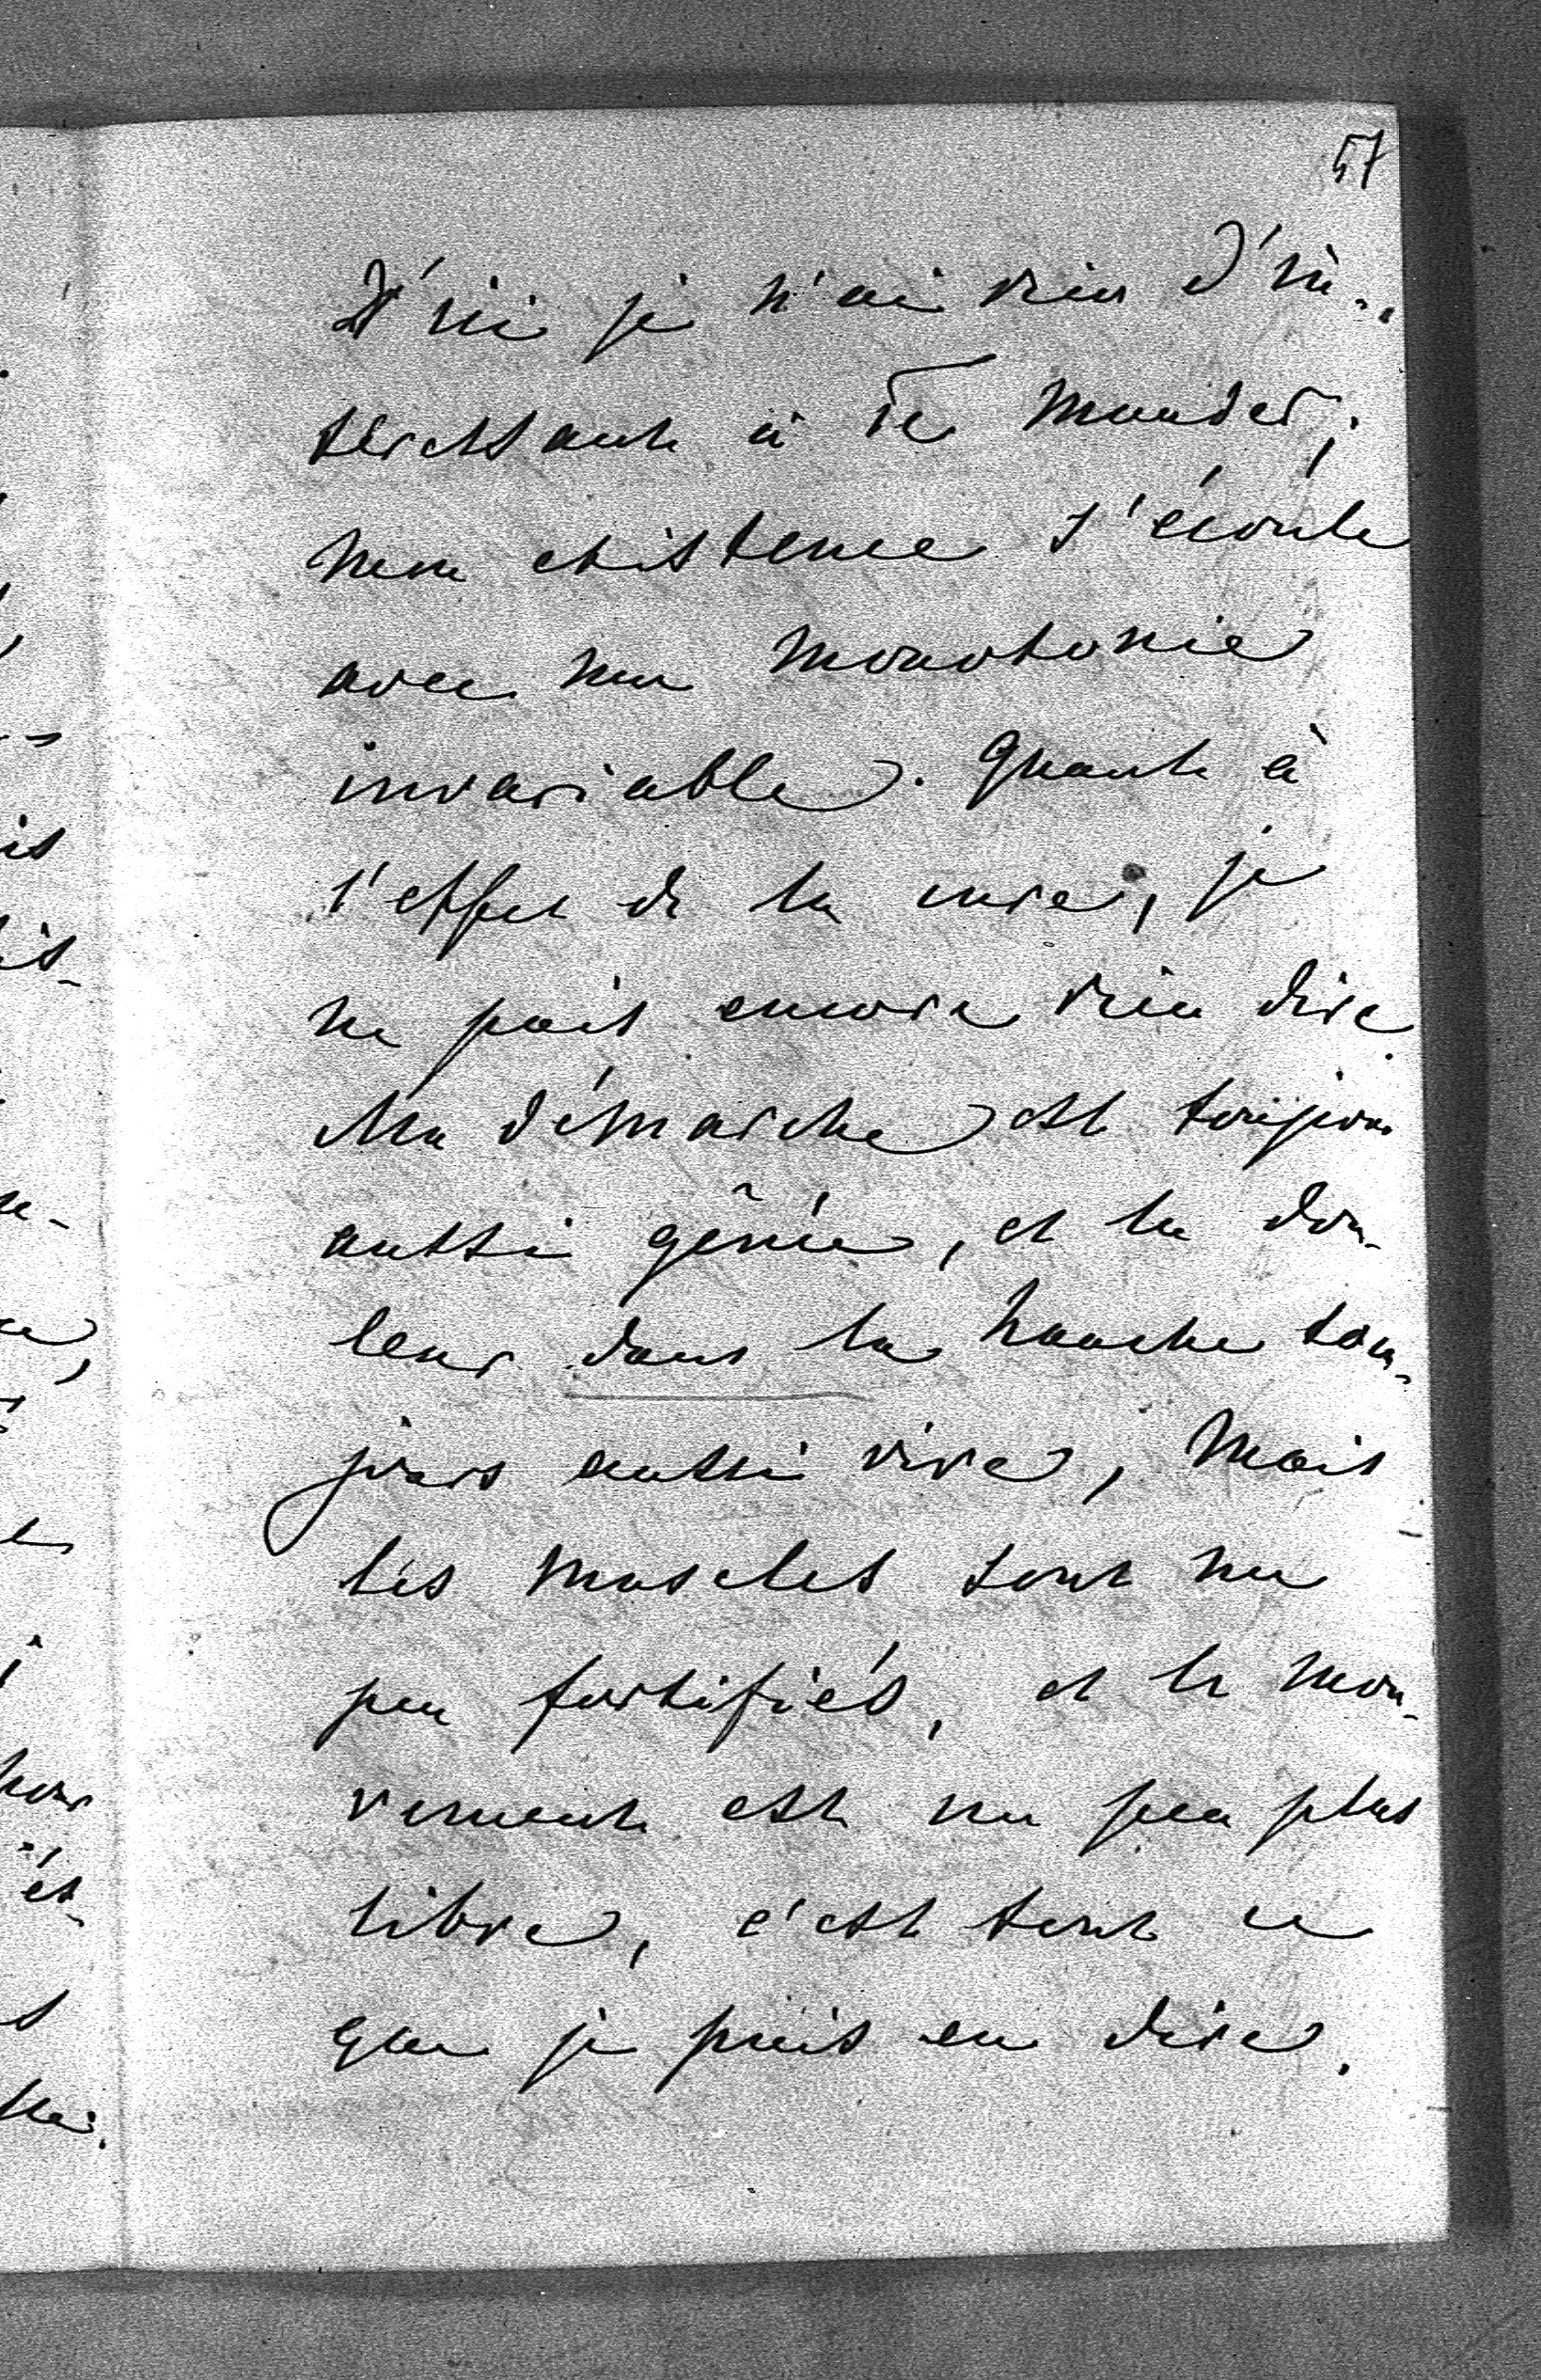 57
D'ici je n'ai rien d'in-
téressant à Te mander;
mon existence s'écoule
avec une monotonie
invariable. Quant à
l'effet de la cure, je
ne puis encore rien dire.
Ma démarche est toujours
aussi gênée, et la dou-
leur dans la hanche tou-
jours aussi vive, mais
les muscles sont un
peu fortifiés, et le mou-
vement est un peu plus
libre, c'est tout ce
que je puis en dire.